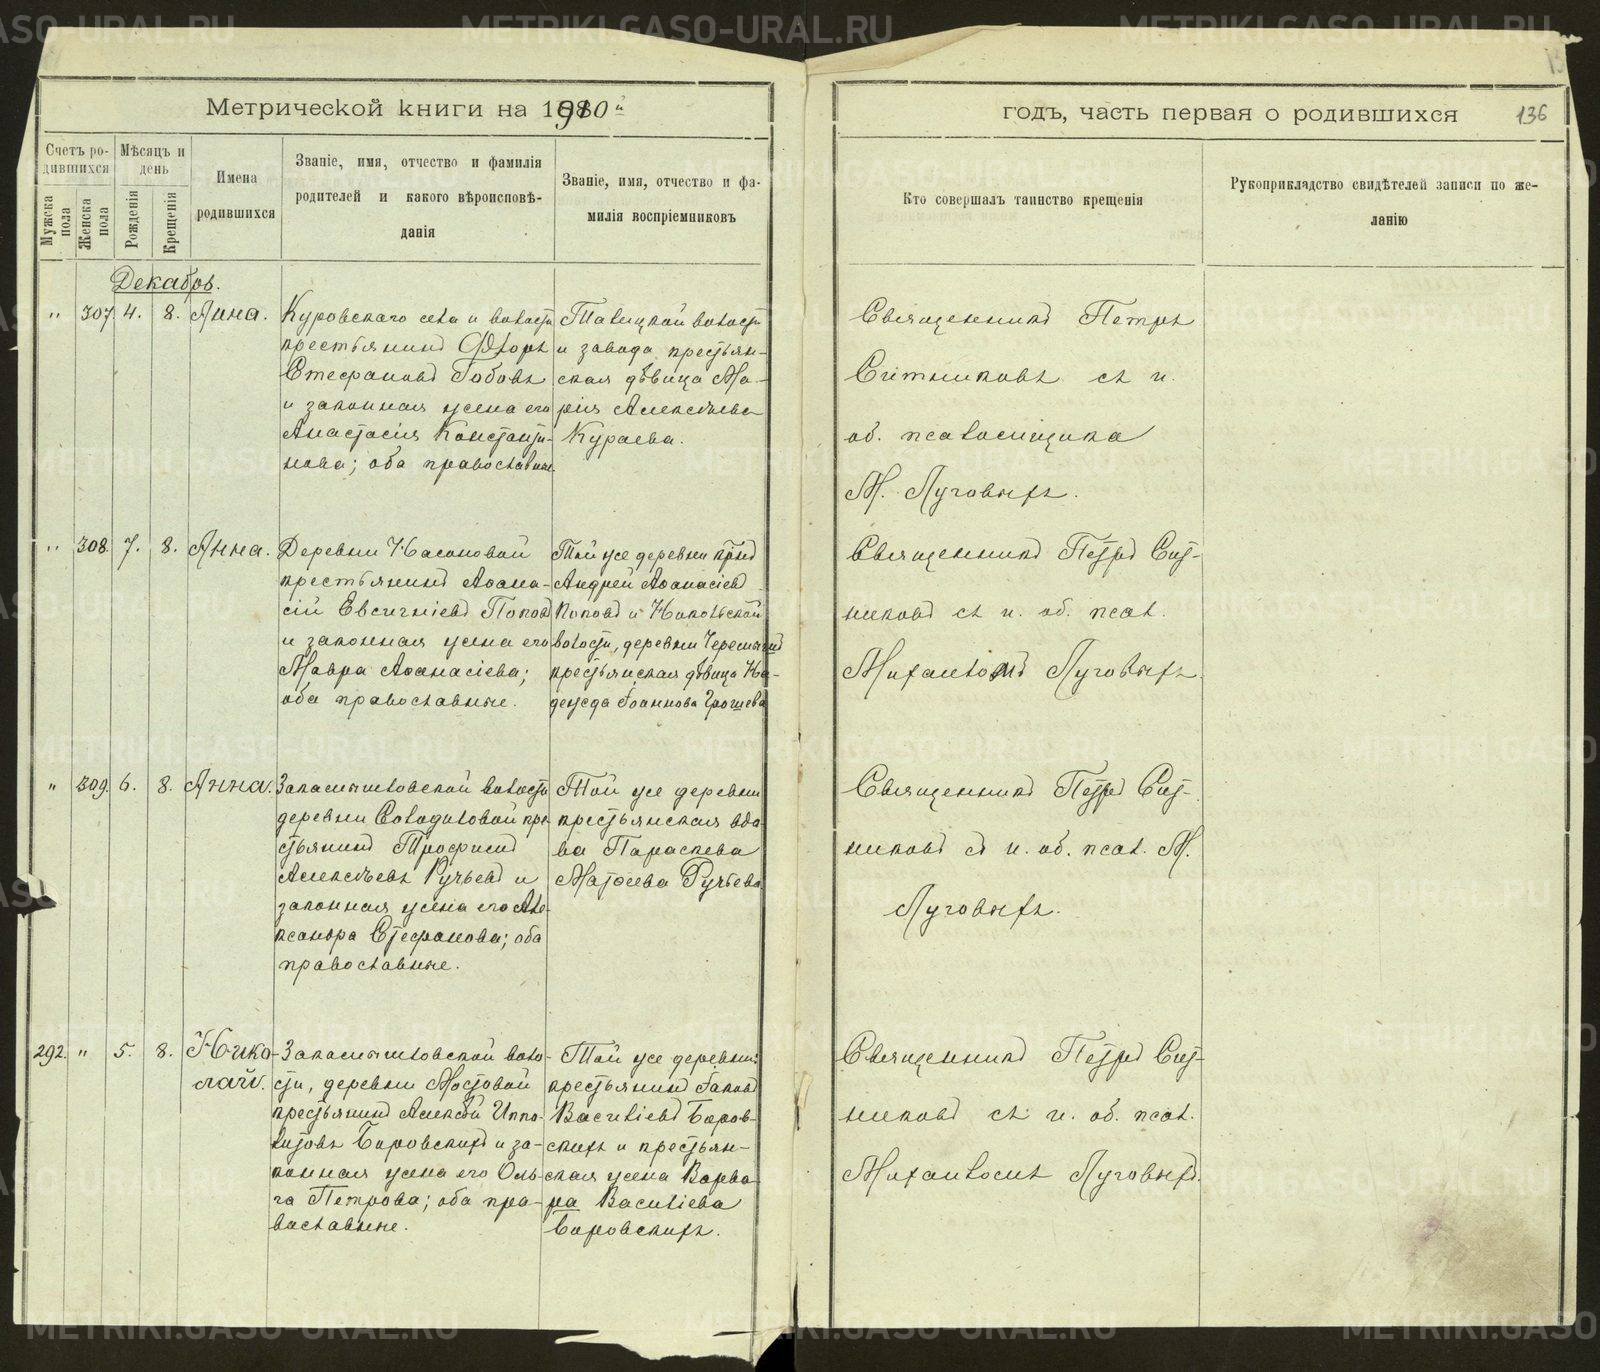 METRIKI.GASO-URAL.RU
Метрической книги на 1910 годъ, часть первая о родившихся
136
Счетъ ро-
дившихся
Мужска пола
Женска пола
Мѣсяцъ и
день
Рожденія
Крещенія
Имена
родившихся
Званіе, имя, отчество и фамилія
родителей и какого вѣроисповѣ-
данія
Званіе, имя, отчество и фа-
милія воспріемниковъ
Кто совершалъ таинство крещенія
Рукоприкладство свидѣтелей записи по же-
ланію
Декабрь.
" 307. 4. 8. Анна.
Куровскаго села и волости
крестьянинъ Ѳедоръ
Стефановъ Бобовъ
и законная жена его
Анастасія Константи-
нова; оба православные.
Талицкой волости
и завода крестьян-
ская дѣвица Ма-
рія Алексѣева
Кураева.
Священникъ Петръ
Ситниковъ съ и.
об. псаломщика
М. Луговыхъ.
" 308. 7. 8. Анна.
Деревни
крестьянинъ Аѳана-
сій Евсигніевъ Поповъ
и законная жена его
Мавра Аѳанасіева;
оба православные.
Той же деревни кр-нъ
Андрей Аѳанасіевъ
Поповъ и Никольской
волости, деревни
крестьянская дѣвица На-
дежда Іоаннова
Священникъ Петръ Сит-
никовъ съ и. об. псал.
Михаиломъ Луговыхъ.
" 309. 6. 8. Анна.
Закамышловской волости
деревни Солодиловой кре-
стьянинъ Трофимъ
Алексѣевъ Ручьевъ и
законная жена его Але-
ксандра Стефанова; оба
православные.
Той же деревни
крестьянская вдо-
ва Параскева
Матѳеева Ручьева
Священникъ Петръ Сит-
никовъ съ и. об. псал. М.
Луговыхъ.
292. " 5. 8. Нико-
лай.
Закамышловской воло-
сти, деревни Мостовой
крестьянинъ Алексѣй Иппо-
литовъ Боровскихъ и за-
конная жена его Оль-
га Петрова; оба пра-
вославные.
Той же деревни:
крестьянинъ Іаковъ
Василіевъ Боров-
скихъ и крестьян-
ская жена Варва-
ра Василіева
Боровскихъ.
Священникъ Петръ Сит-
никовъ съ и. об. псал.
Михаиломъ Луговыхъ.